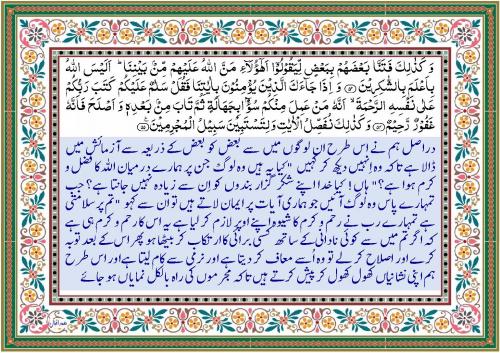 وَ كَذٰلِكَ فَتَنَّا بَعْضَهُمْ بِبَعْضٍ لِّیَقُوْلُوْۤا اَهٰۤؤُلَآءِ مَنَّ اللّٰهُ عَلَیْهِمْ مِّنْۢ بَیْنِنَا ؕ اَلَیْسَ اللّٰهُ
بِاَعْلَمَ بِالشّٰكِرِیْنَ ﴿۵۳﴾ وَ اِذَا جَآءَكَ الَّذِیْنَ یُؤْمِنُوْنَ بِاٰیٰتِنَا فَقُلْ سَلٰمٌ عَلَیْكُمْ كَتَبَ رَبُّكُمْ
عَلٰی نَفْسِهِ الرَّحْمَةَ ۙ اَنَّهٗ مَنْ عَمِلَ مِنْكُمْ سُوْٓءًۢا بِجَهَالَةٍ ثُمَّ تَابَ مِنْۢ بَعْدِهٖ وَ اَصْلَحَ فَاَنَّهٗ
غَفُوْرٌ رَّحِیْمٌ ﴿۵۴﴾ وَ كَذٰلِكَ نُفَصِّلُ الْاٰیٰتِ وَ لِتَسْتَبِیْنَ سَبِیْلُ الْمُجْرِمِیْنَ ﴿۵۵﴾
دراصل ہم نے اس طرح ان لوگوں میں سے بعض کو بعض کے ذریعہ سے آزمائش میں
ڈالا ہے تاکہ وہ انہیں دیکھ کر کہیں "کیا یہ ہیں وہ لوگ جن پر ہمارے درمیان اللہ کا فضل و
کرم ہوا ہے؟" ہاں! کیا خدا اپنے شکر گزار بندوں کو ان سے زیادہ نہیں جانتا ہے؟ جب
تمہارے پاس وہ لوگ آئیں جو ہماری آیات پر ایمان لاتے ہیں تو ان سے کہو "تم پر سلامتی
ہے تمہارے رب نے رحم و کرم کا شیوہ اپنے اوپر لازم کر لیا ہے یہ اس کا رحم و کرم ہی ہے
کہ اگر تم میں سے کوئی نادانی کے ساتھ کسی برائی کا ارتکاب کر بیٹھا ہو پھر اس کے بعد توبہ
کرے اور اصلاح کر لے تو وہ اسے معاف کر دیتا ہے اور نرمی سے کام لیتا ہے اور اس طرح
ہم اپنی نشانیاں کھول کھول کر پیش کرتے ہیں تاکہ مجرموں کی راہ بالکل نمایاں ہو جائے